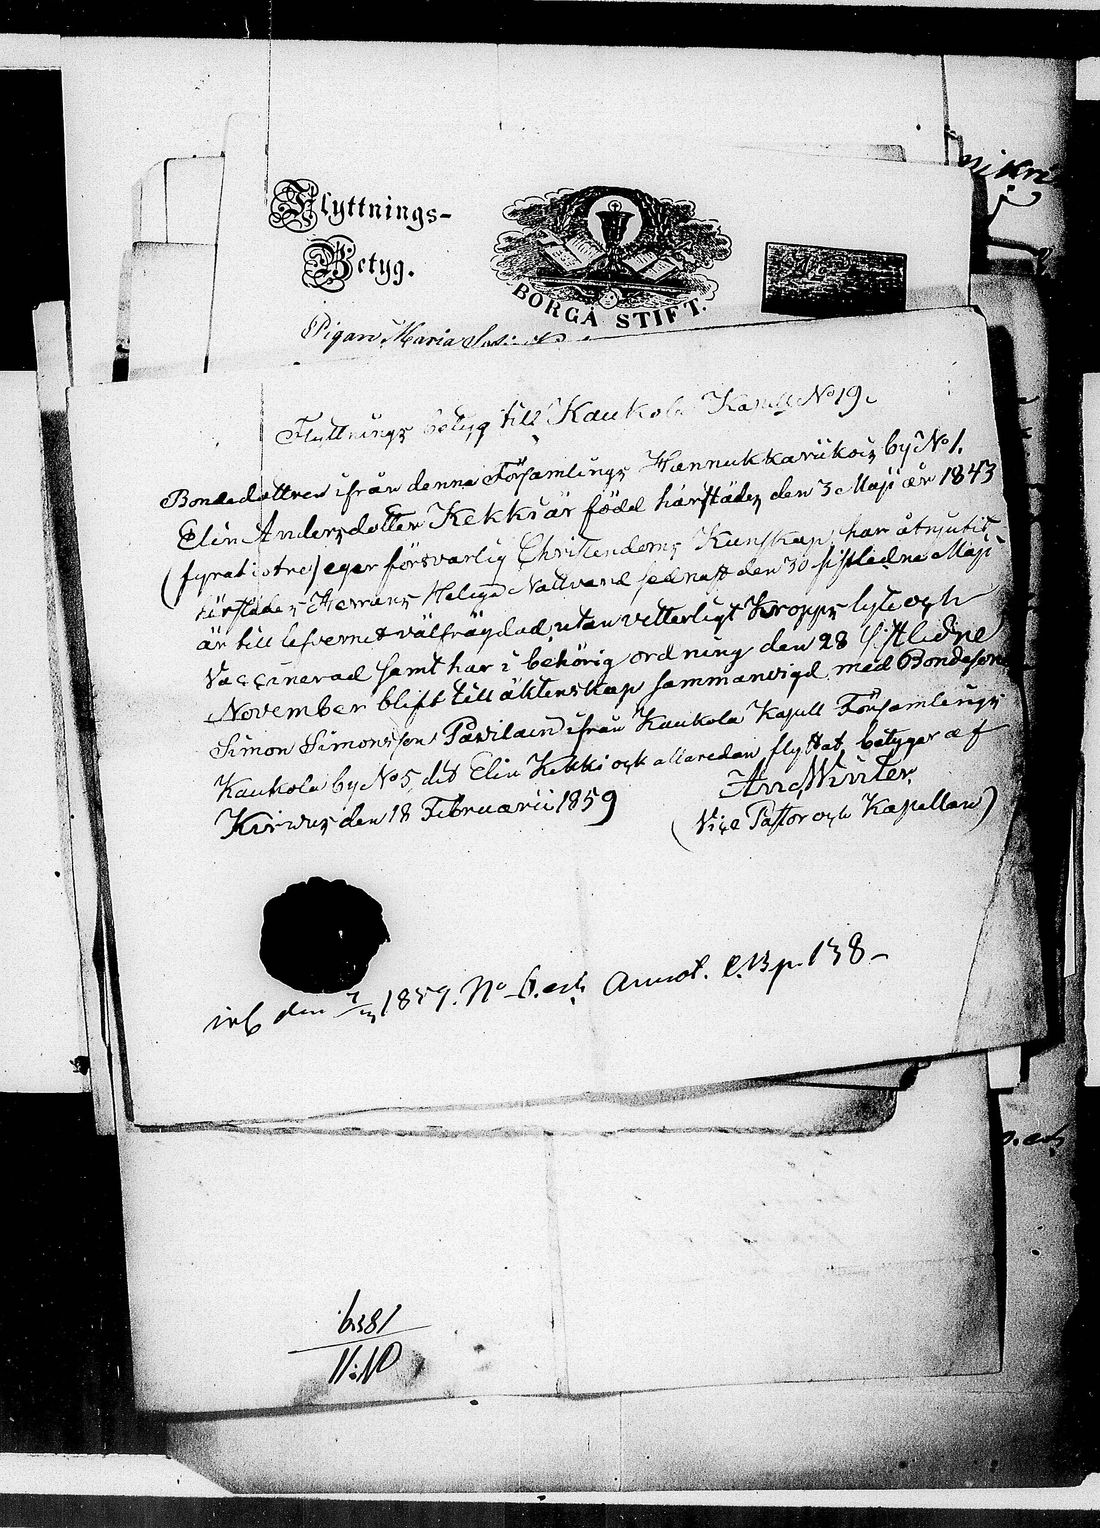 Flyttnings-
Betyg.
BORGÅ STIFT.
Pigan Maria
Flyttnings betyg till Kaukola Kapell No 19.
Bondedottren ifrån denna Församlings Hannukkariikois by No 1.
Elin Andersdotter Kekki är född härstädes den 3 Maji år 1843
(fyratiotre) eger försvarlig Christendoms Kunskap, har åtnjutit
härstädes Herrans Heliga Nattvard sednast den 30 sistledne Maji
är till lefvernet välfrägdad, utan vetterligt Kropps lyte och
Vaccinerad samt har i behörig ordning den 28 sistledne
November blift till äktenskap sammanvigd med Bondesonen
Simon Simonsson Pavilain ifrån Kaukola Kapell Församlings
Kaukola by No 5, dit Elin Kekki ock allaredan flyttat, betygar af
Kirvus den 18 Februarii 1859
And. Winter
(Vice Pastor och Kapellan)
den 1859. No 6. och Annot. p. 138